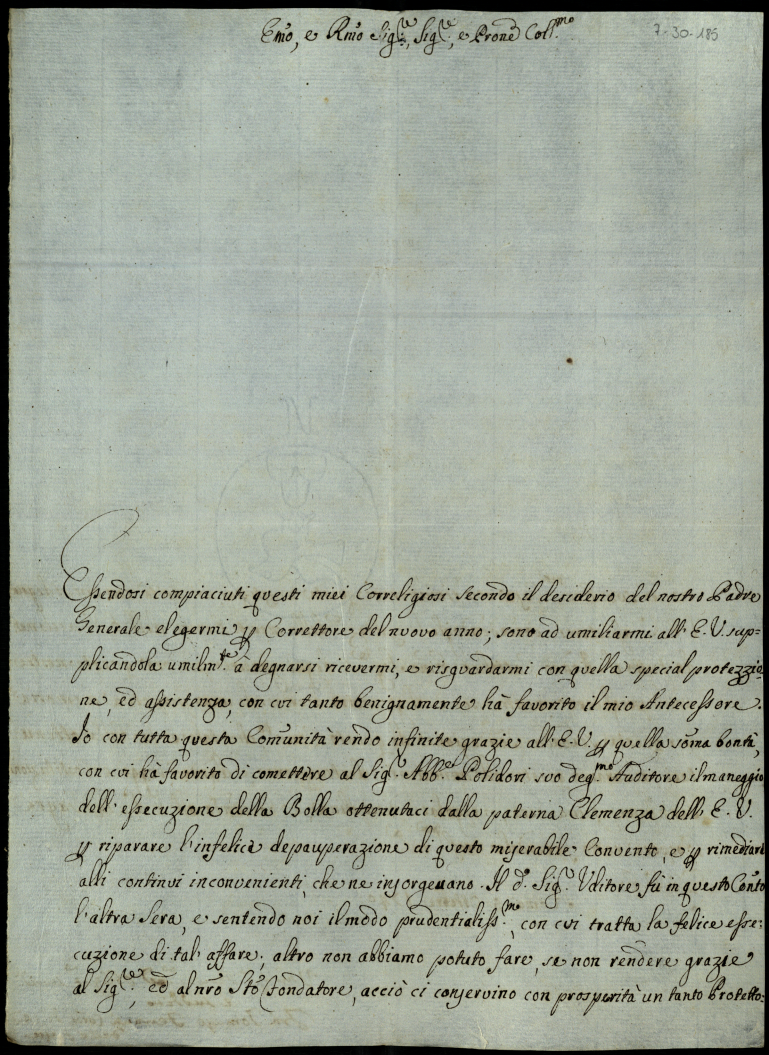 Emo, e Rmo Sig.re, Sig.re, e Prone Coll.mo
7-30-185
Essendosi compiaciuti questi miei Correligiosi secondo il desiderio del nostro Padre
Generale elegermi p Correttore del nuovo anno; sono ad umiliarmi all' E. V. sup=
plicandola umilm.te à degnarsi ricevermi, e risguardarmi con quella special protezzio=
ne, ed assistenza, con cui tanto benignamente hà favorito il mio Antecessore.
Io con tutta questa Comunità rendo infinite grazie all' E. V. p quella soma bontà,
con cui hà favorito di comettere al Sig.r Abb.e Polidori suo deg.mo Auditore il maneggio
dell' essecuzione della Bolla ottenutaci dalla paterna Clemenza dell' E. V.
p riparare l'infelice depauperazione di questo miserabile Convento, e p rimediare
alli continui inconvenienti, che ne insorgeuano. Il d.o Sig.r Uditore fù in questo Conto
l'altra Sera, e sentendo noi il modo prudentialiss.mo, con cui tratta la felice esse=
cuzione di tal' affare, altro non abbiamo potuto fare, se non rendere grazie
al Sig.re, ed al nro Sto Fondatore, acciò ci conservino con prosperità un tanto Protetto=